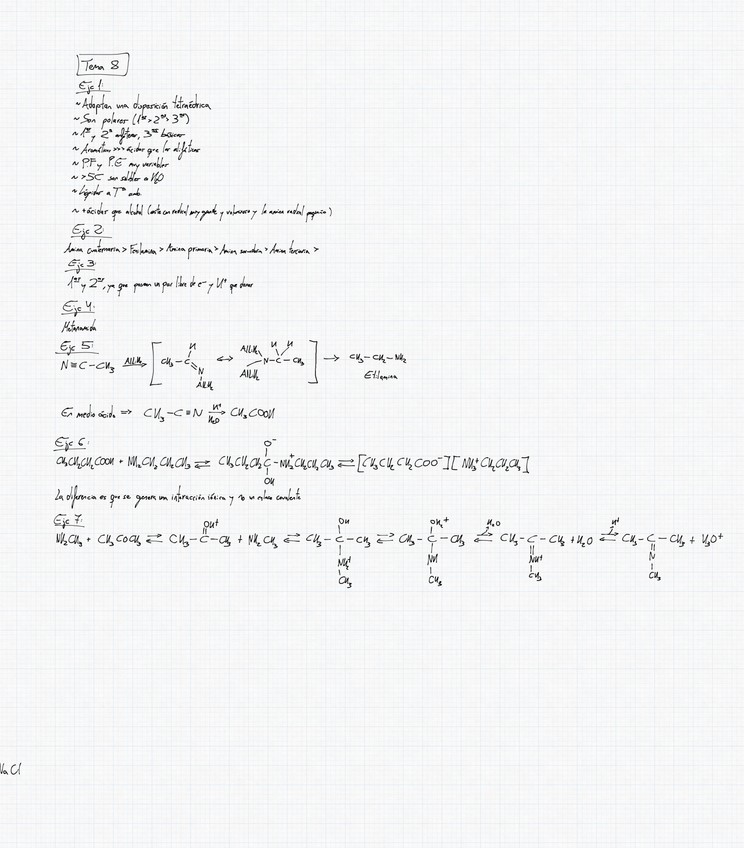 Tema 8
Ejc 1:
~ Adoptan una disposición tetraédrica
~ Son polares (1ªˢ > 2ªˢ > 3ªˢ)
~ 1ªˢ y 2ª 3ªˢ básicas
~ Aromáticas >>> ácidas que las alifáticas
~ P.F y P.E muy variables
~ >5C son solubles en H₂O
~ Líquidas a Tª amb.
~ + ácidas que alcohol (esta con radical muy grande y voluminoso y la amina radical pequeño)
Ejc 2:
Amina cuaternaria > Fenilamina > Amina primaria > Amina secundaria > Amina terciaria >
Ejc 3:
1ªˢ y 2ªˢ, ya que poseen un par libre de e⁻ y H⁺ que donar
Ejc 4:
Metanamida
Ejc 5:
N≡C-CH₃ AlLiH₄ [ CH₃-C(H)=N-AlLiH₂ ↔ AlLiH₂ AlLiH₂ N-C(H)(H)-CH₃ ] → CH₃-CH₂-NH₂
Etilamina
En medio ácido ⇒ CH₃-C≡N H⁺ H₂O → CH₃COOH
Ejc 6:
CH₃CH₂CH₂COOH + NH₂CH₂CH₂CH₃ ⇌ CH₃CH₂CH₂C(O⁻)(OH)-NH₂⁺CH₂CH₂CH₃ ⇌ [CH₃CH₂CH₂COO⁻][NH₃⁺CH₂CH₂CH₃]
La diferencia es que se genera una interacción iónica y no un enlace covalente
Ejc 7:
NH₂CH₃ + CH₃COCH₃ ⇌ CH₃-C(=OH⁺)-CH₃ + NH₂CH₃ ⇌ CH₃-C(OH)(NH₂⁺-CH₃)-CH₃ ⇌ CH₃-C(OH₂⁺)(NH-CH₃)-CH₃ ⇌ H₂O CH₃-C(=NH⁺-CH₃)-CH₃ + H₂O ⇌ H⁺ CH₃-C(=N-CH₃)-CH₃ + H₃O⁺
NaCl